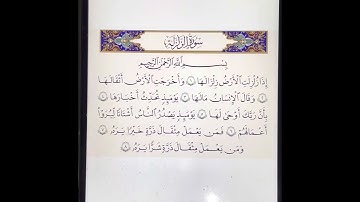 سورة الزلزلة
بسم الله الرحمن الرحيم
إِذَا زُلْزِلَتِ الْأَرْضُ زِلْزَالَهَا ١ وَأَخْرَجَتِ الْأَرْضُ أَثْقَالَهَا
٢ وَقَالَ الْإِنسَانُ مَا لَهَا ٣ يَوْمَئِذٍ تُحَدِّثُ أَخْبَارَهَا ٤
بِأَنَّ رَبَّكَ أَوْحَىٰ لَهَا ٥ يَوْمَئِذٍ يَصْدُرُ النَّاسُ أَشْتَاتًا لِّيُرَوْا
أَعْمَالَهُمْ ٦ فَمَن يَعْمَلْ مِثْقَالَ ذَرَّةٍ خَيْرًا يَرَهُ ٧
وَمَن يَعْمَلْ مِثْقَالَ ذَرَّةٍ شَرًّا يَرَهُ ٨